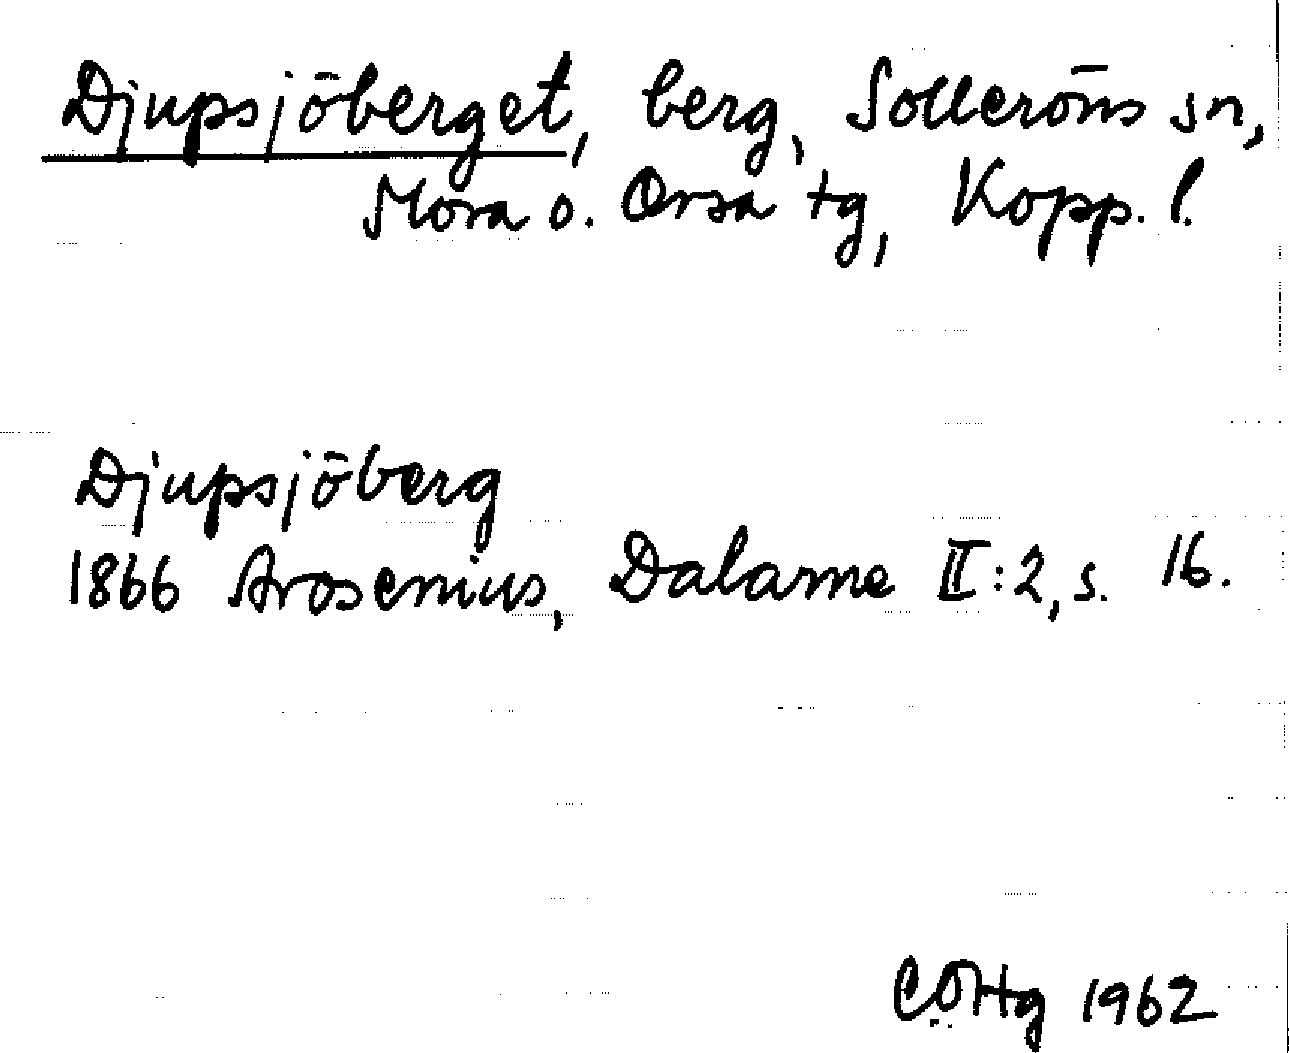 Djupsjöberget, berg, Solleröns sn,
Mora o. Orsa tg, Kopp. l.
Djupsjöberg
1866 Arosenius, Dalarne II:2, s. 16.
CÖHg 1962